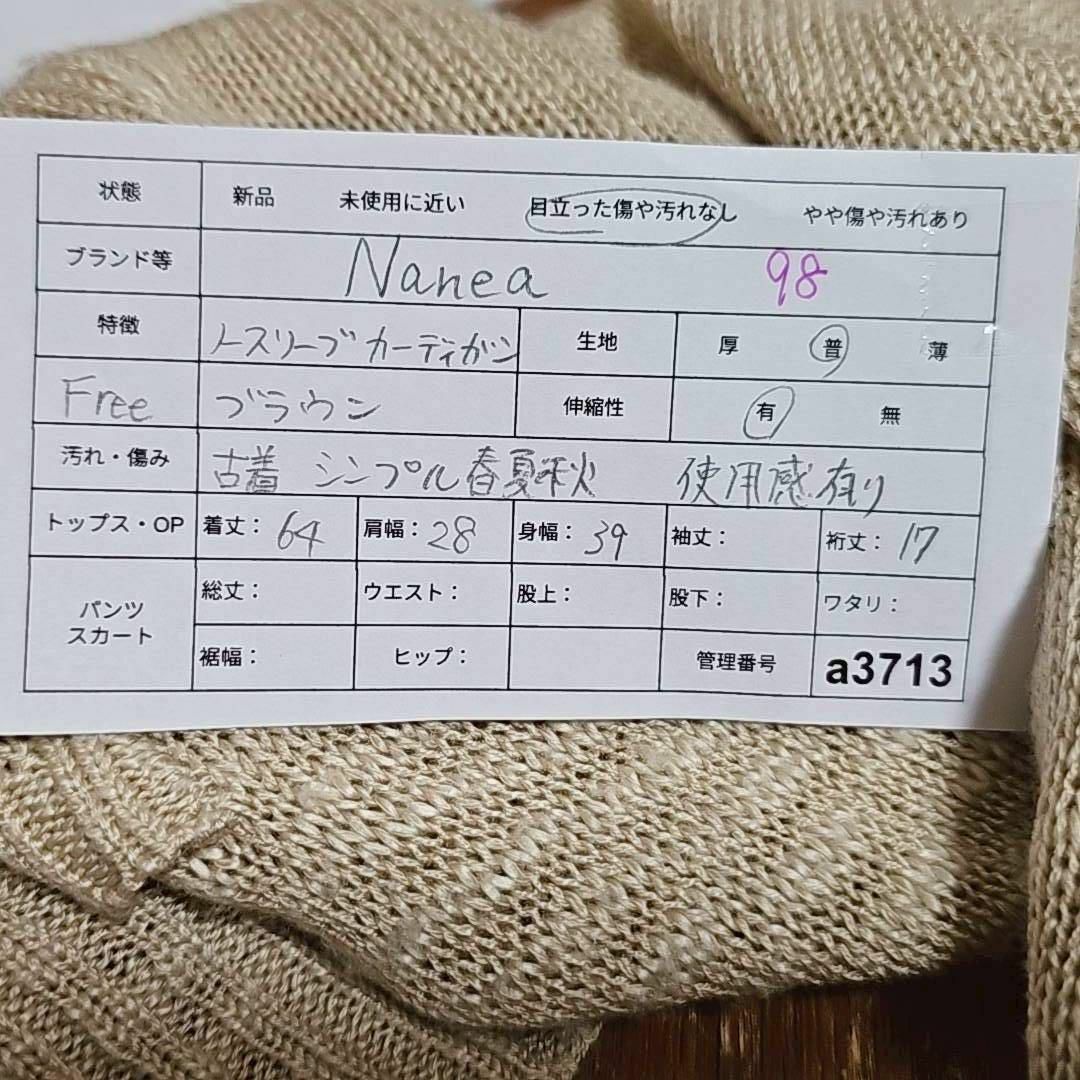 状態 新品 未使用に近い 目立った傷や汚れなし やや傷や汚れあり
ブランド等 Nanea 98
特徴 ノースリーブカーディガン 生地 厚 普 薄
Free ブラウン 伸縮性 有 無
汚れ・傷み 古着 シンプル春夏秋 使用感有り
トップス・OP 着丈： 64 肩幅： 28 身幅： 39 袖丈： 裄丈： 17
パンツ スカート 総丈： ウエスト： 股上： 股下： ワタリ：
裾幅： ヒップ： 管理番号 a3713